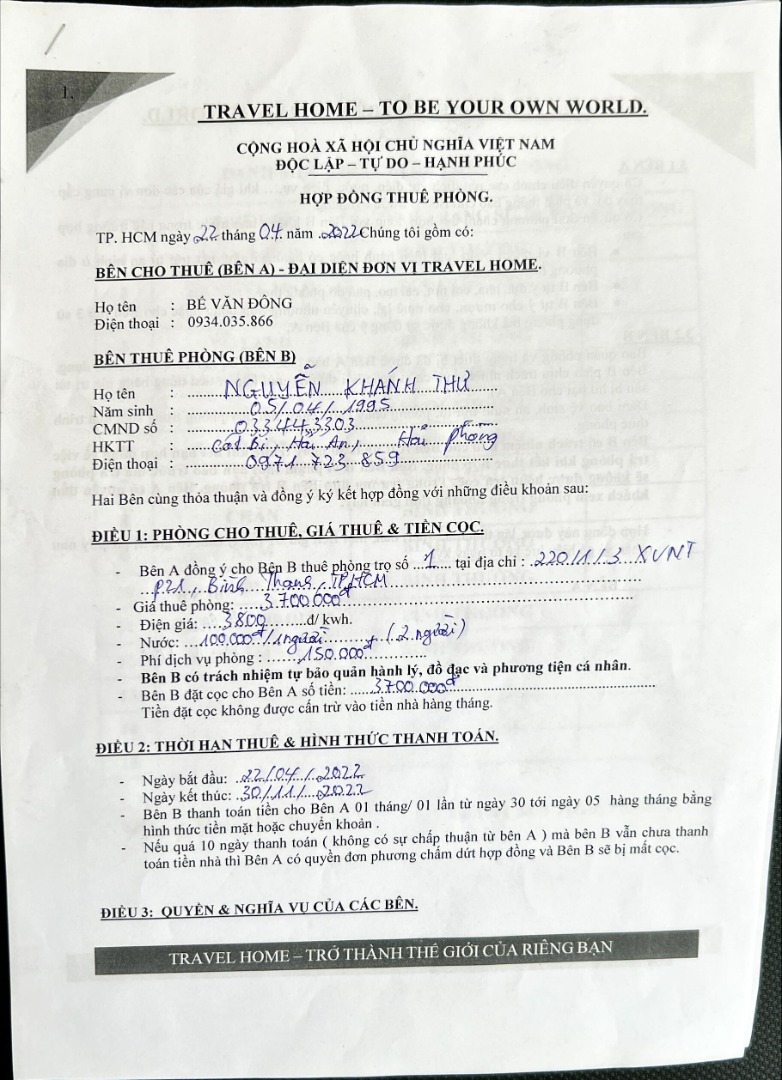 1.
TRAVEL HOME – TO BE YOUR OWN WORLD.
CỘNG HOÀ XÃ HỘI CHỦ NGHĨA VIỆT NAM
ĐỘC LẬP – TỰ DO – HẠNH PHÚC
HỢP ĐỒNG THUÊ PHÒNG.
TP. HCM ngày 22 tháng 04 năm 2022 Chúng tôi gồm có:
BÊN CHO THUÊ (BÊN A) - ĐẠI DIỆN ĐƠN VỊ TRAVEL HOME.
Họ tên : BẾ VĂN ĐÔNG
Điện thoại : 0934.035.866
BÊN THUÊ PHÒNG (BÊN B)
Họ tên : NGUYỄN KHÁNH THƯ
Năm sinh : 05/04/1995
CMND số : 033443303
HKTT : Cát Bi, Hải An, Hải Phòng
Điện thoại : 0971 723 859
Hai Bên cùng thỏa thuận và đồng ý ký kết hợp đồng với những điều khoản sau:
ĐIỀU 1: PHÒNG CHO THUÊ, GIÁ THUÊ & TIỀN CỌC.
- Bên A đồng ý cho Bên B thuê phòng trọ số 1 tại địa chỉ : 220/1/3 XVNT
P21, Bình Thạnh, TPHCM
- Giá thuê phòng: 3.700.000đ
- Điện giá: 3800 đ/ kwh.
- Nước: 100.000đ/1người (2 người)
- Phí dịch vụ phòng : 150.000đ
- Bên B có trách nhiệm tự bảo quản hành lý, đồ đạc và phương tiện cá nhân.
- Bên B đặt cọc cho Bên A số tiền: 3700.000đ
Tiền đặt cọc không được cấn trừ vào tiền nhà hàng tháng.
ĐIỀU 2: THỜI HẠN THUÊ & HÌNH THỨC THANH TOÁN.
- Ngày bắt đầu: 22/04/2022
- Ngày kết thúc: 30/11/2022
- Bên B thanh toán tiền cho Bên A 01 tháng/ 01 lần từ ngày 30 tới ngày 05 hàng tháng bằng
hình thức tiền mặt hoặc chuyển khoản .
- Nếu quá 10 ngày thanh toán ( không có sự chấp thuận từ bên A ) mà bên B vẫn chưa thanh
toán tiền nhà thì Bên A có quyền đơn phương chấm dứt hợp đồng và Bên B sẽ bị mất cọc.
ĐIỀU 3: QUYỀN & NGHĨA VỤ CỦA CÁC BÊN.
TRAVEL HOME – TRỞ THÀNH THẾ GIỚI CỦA RIÊNG BẠN